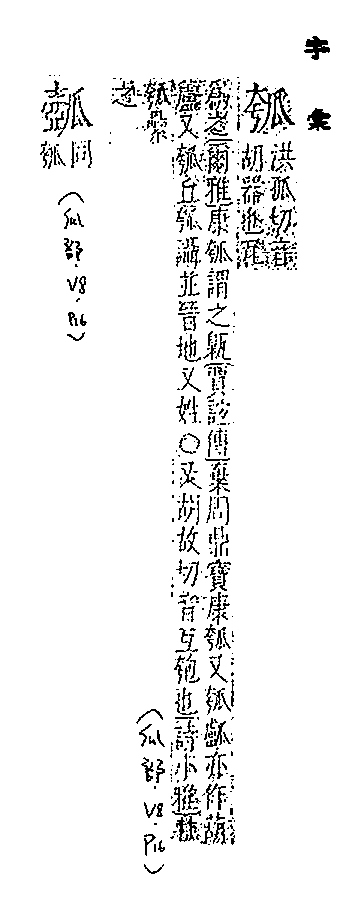 字彙
瓠 洪孤切音
胡器也
爾雅康瓠謂之甈賈誼傳棄周鼎寶康瓠又瓠瓤亦作
盧又瓠丘瓠讘並晉地又姓○又胡故切音互匏也詩小雅
瓠纍
之
(瓜部·V8·P16)
𤬛 同
瓠
(瓜部·V8·P16)